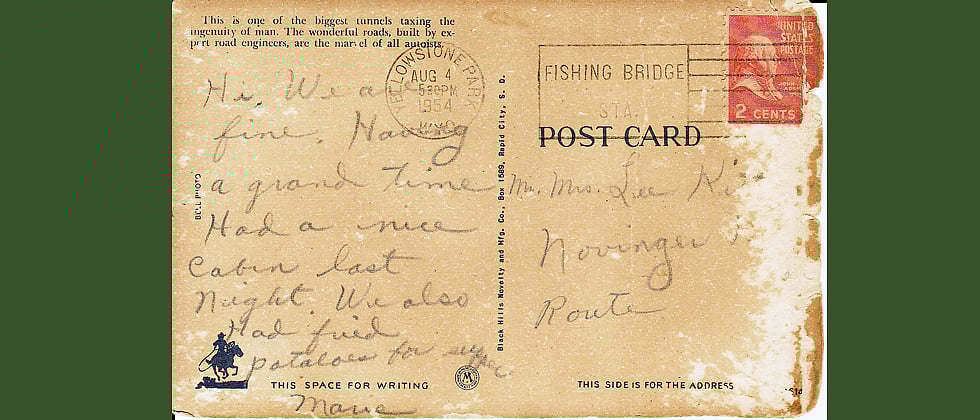 This is one of the biggest tunnels taxing the
ingenuity of man. The wonderful roads, built by ex-
pert road engineers, are the marvel of all autoists.
YELLOWSTONE PARK
AUG 4
530PM
1954
WYO
FISHING BRIDGE
STA.
UNITED
STATES
POSTAGE
JOHN ADAMS
2 CENTS
POST CARD
Hi, We are
fine. Having
a grand time
Had a nice
Cabin last
Night. We also
Had fried
potatoes for supper
Marie
Mr. Mrs. Lee
Novinger
Route
Black Hills Novelty and Mfg. Co., Box 1689, Rapid City, S. D.
THIS SPACE FOR WRITING
THIS SIDE IS FOR THE ADDRESS